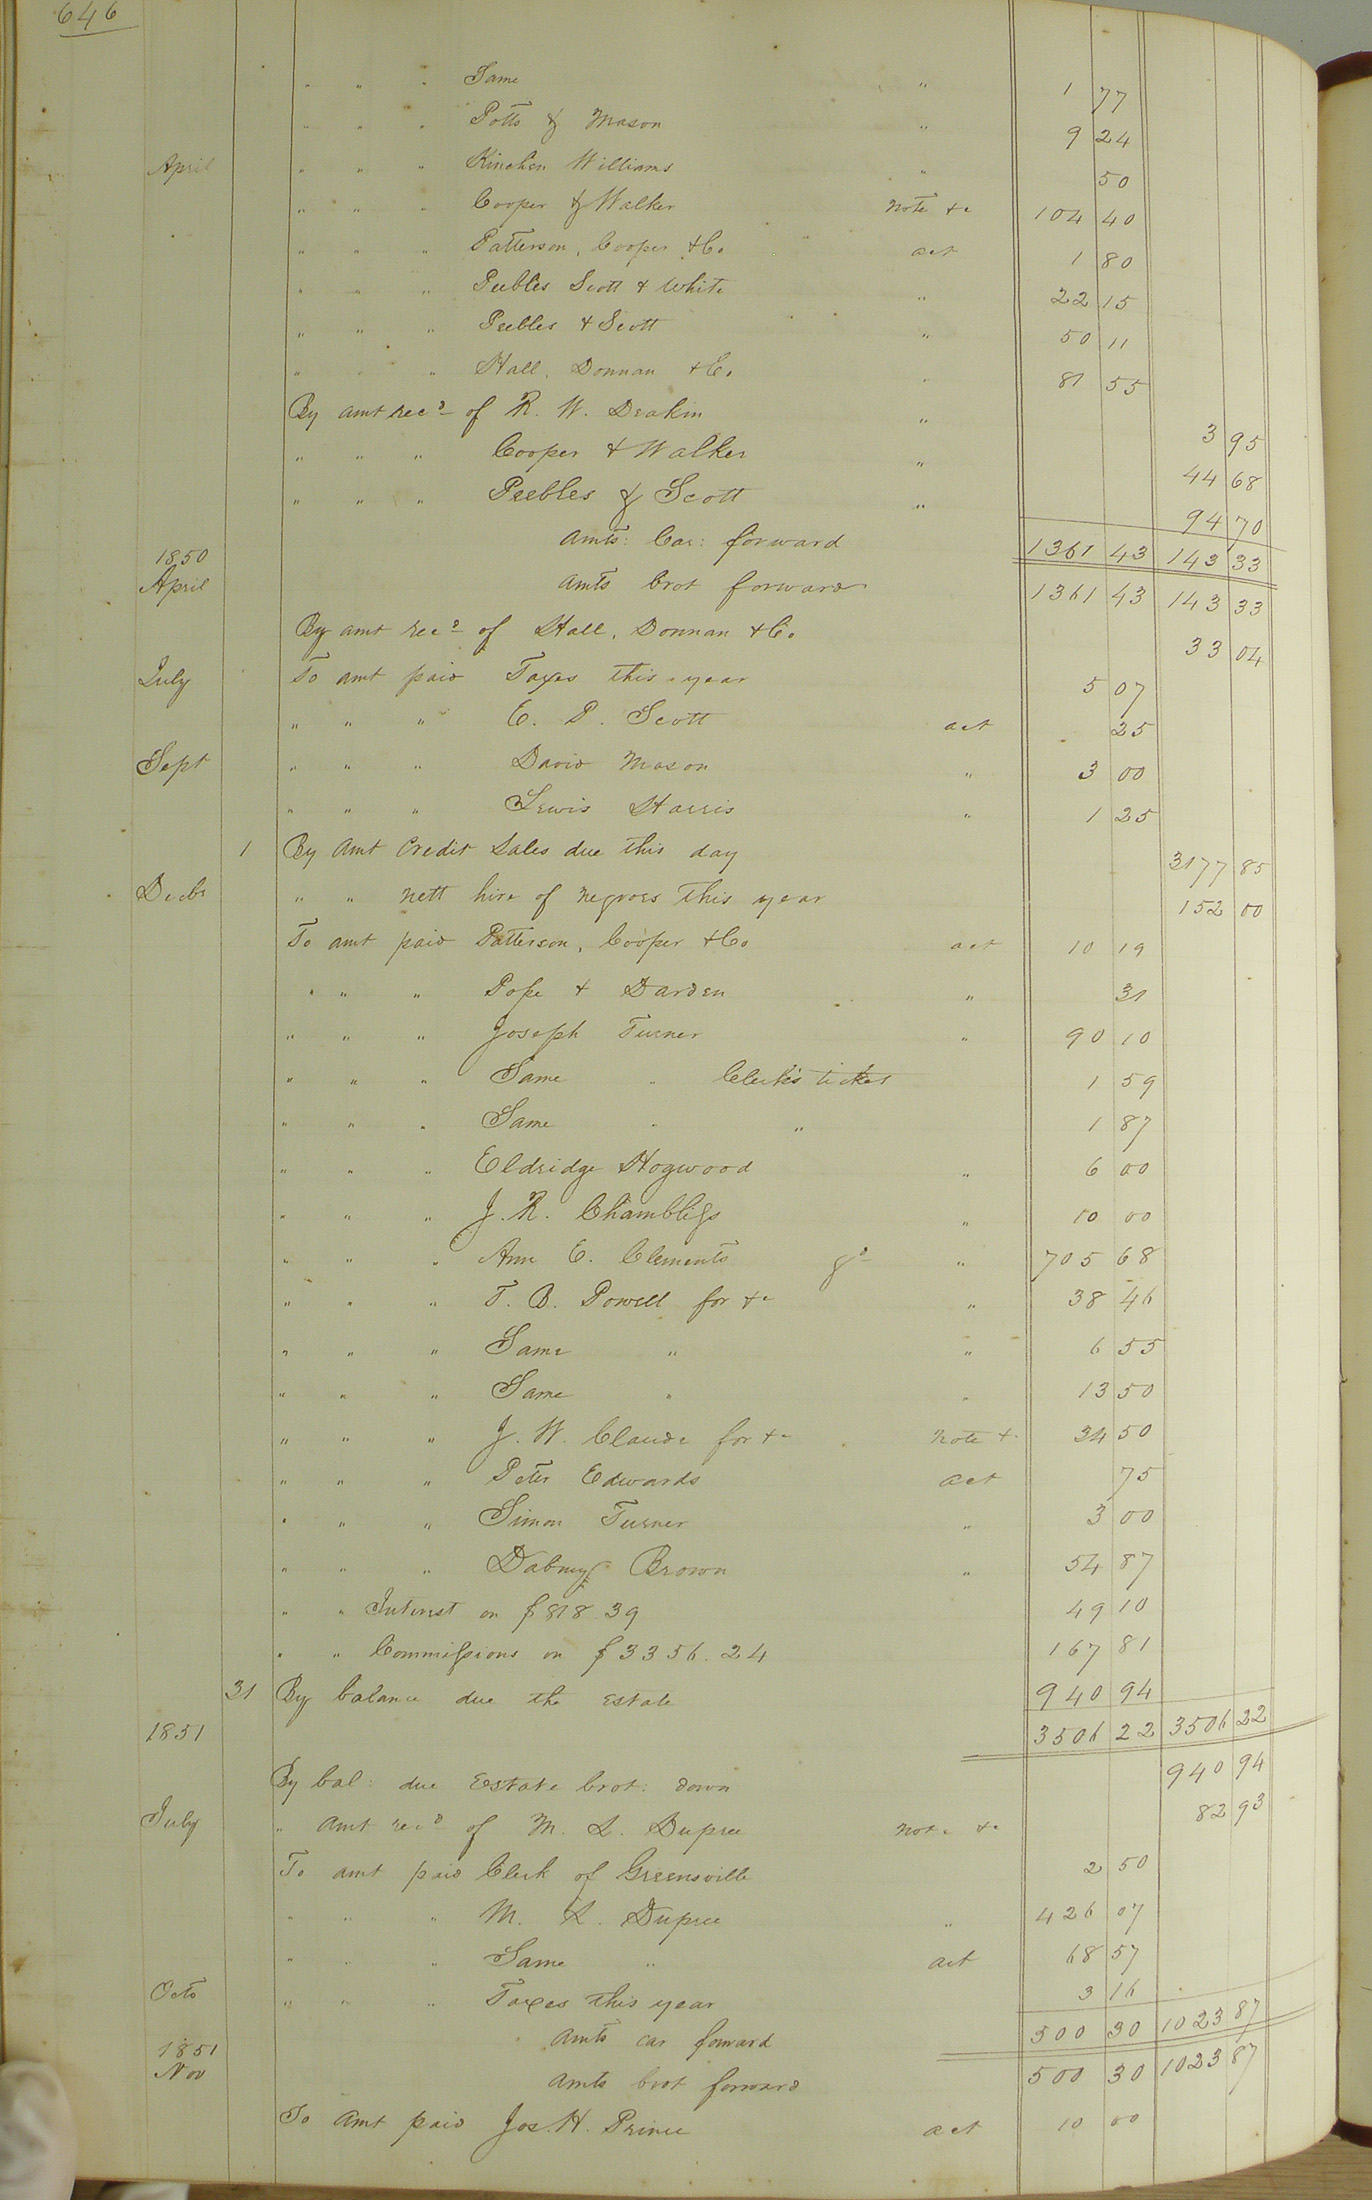 646
" " " Same " 1 77
" " " Potts & Mason " 9 24
April " " " Kinchen Williams " 50
" " " Cooper & Walker note &c 104 40
" " " Patterson, Cooper & Co act 1 80
" " " Peebles Scott & White " 22 15
" " " Peebles & Scott " 50 11
" " " Hall, Donnan & Co. " 81 55
By amt recd of R. W. Deakin " 3 95
" " " Cooper & Walker " 44 68
" " " Peebles & Scott " 94 70
Amts: Car: forward 1361 43 143 33
1850
April amts brot forward 1361 43 143 33
By amt recd of Hall, Donnan & Co 33 04
July To amt paid Taxes this year 5 07
" " " E. P. Scott act 25
Sept " " " David Mason " 3 00
" " " Lewis Harris " 1 25
1 By Amt Credit Sales due this day 3177 85
Decbr " " nett hire of negroes this year 152 00
To amt paid Patterson, Cooper & Co act 10 19
" " " Pope & Darden " 31
" " " Joseph Turner " 90 10
" " " Same " Clerk's ticket 1 59
" " " Same " " 1 87
" " " Eldridge Hogwood " 6 00
" " " J. R. Chambliss " 10 00
" " " Ann E. Clements " 705 68
" " " T. B. Powell for &c " 38 46
" " " Same " " 6 55
" " " Same " " 13 50
" " " J. W. Claude for &c note & 34 50
" " " Peter Edwards act 75
" " " Simon Turner " 3 00
" " " Dabney Brown " 54 87
" " Interest on $818.39 49 10
" " Commissions on $3356.24 167 81
31 By balance due the Estate 940 94
1851 3506 22 3506 22
By bal: due Estate brot: down 940 94
July " amt recd of M. L. Dupree note &c 82 93
To amt paid Clerk of Greensville 2 50
" " " M. L. Dupree " 426 07
" " " Same " act 68 57
Octo " " " Taxes this year 3 16
amts car forward 500 30 1023 87
1851
Nov amts brot forward 500 30 1023 87
To Amt paid Jos. H. Prince act 10 00